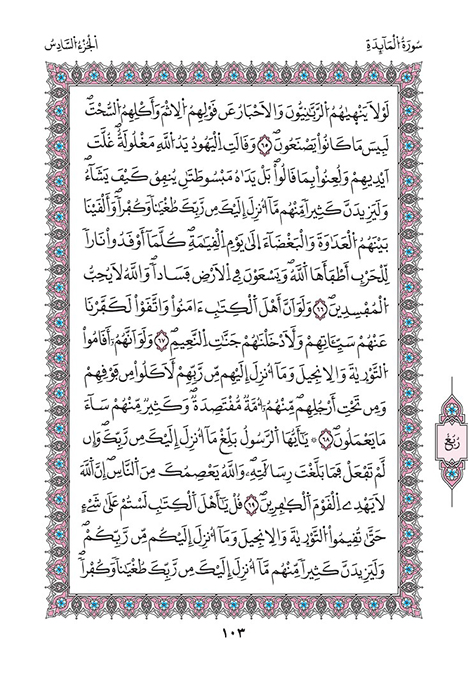 سُورَةُ الْمَآئِدَةِ
الْجُزْءُ السَّادِسُ
لَوْلَا يَنْهٰيهُمُ الرَّبَّٰنِيُّونَ وَالَاحْبَارُ عَن قَوْلِهِمُ الِاثْمَ وَأَكْلِهِمُ السُّحْتَۖ
لَبِيسَ مَا كَانُواْ يَصْنَعُونَۖ ٦٥ وَقَالَتِ الْيَهُودُ يَدُ اللَّهِ مَغْلُولَةٌۖ غُلَّتَ
اَيْدِيهِمْ وَلُعِنُواْ بِمَا قَالُواْۖ بَلْ يَدَاهُ مَبْسُوطَتَٰنِ يُنفِقُ كَيْفَ يَشَآءُۖ
وَلَيَزِيدَنَّ كَثِيراً مِّنْهُم مَّآ أُنزِلَ إِلَيْكَ مِن رَّبِّكَ طُغْيَٰناً وَكُفْراًۖ وَأَلْقَيْنَا
بَيْنَهُمُ الْعَدَٰوَةَ وَالْبَغْضَآءَ اِلَىٰ يَوْمِ الْقِيَٰمَةِۖ كُلَّمَآ أَوْقَدُواْ نَاراً
لِّلْحَرْبِ أَطْفَأَهَا اللَّهُۖ وَيَسْعَوْنَ فِي الَارْضِ فَسَاداًۖ وَاللَّهُ لَا يُحِبُّ
الْمُفْسِدِينَۖ ٦٦ وَلَوَ اَنَّ أَهْلَ الْكِتَٰبِ ءَامَنُواْ وَاتَّقَوْاْ لَكَفَّرْنَا
عَنْهُمْ سَيِّـَٔاتِهِمْ وَلَأَدْخَلْنَٰهُمْ جَنَّٰتِ النَّعِيمِۖ ٦٧ وَلَوَ اَنَّهُمُۥٓ أَقَامُواْ
التَّوْرَيٰةَ وَالِانجِيلَ وَمَآ أُنزِلَ إِلَيْهِم مِّن رَّبِّهِمْ لَأَكَلُواْ مِن فَوْقِهِمْ
وَمِن تَحْتِ أَرْجُلِهِمۖ مِّنْهُمُۥٓ أُمَّةٌ مُّقْتَصِدَةٌۖ وَكَثِيرٌ مِّنْهُمْ سَآءَ
مَا يَعْمَلُونَۖ ٦٨ ۞ يَٰٓأَيُّهَا الرَّسُولُ بَلِّغْ مَآ أُنزِلَ إِلَيْكَ مِن رَّبِّكَۖ وَإِن
لَّمْ تَفْعَلْ فَمَا بَلَّغْتَ رِسَالَٰتِهِۦۖ وَاللَّهُ يَعْصِمُكَ مِنَ النَّاسِۖ إِنَّ اللَّهَ
لَا يَهْدِي الْقَوْمَ الْكٰفِرِينَۖ ٦٩ قُلْ يَٰٓأَهْلَ الْكِتَٰبِ لَسْتُمْ عَلَىٰ شَيْءٍ
حَتَّىٰ تُقِيمُواْ التَّوْرَيٰةَ وَالِانجِيلَ وَمَآ أُنزِلَ إِلَيْكُم مِّن رَّبِّكُمْۖ
وَلَيَزِيدَنَّ كَثِيراً مِّنْهُم مَّآ أُنزِلَ إِلَيْكَ مِن رَّبِّكَ طُغْيَٰناً وَكُفْراًۖ
رُبُع
١٠٣